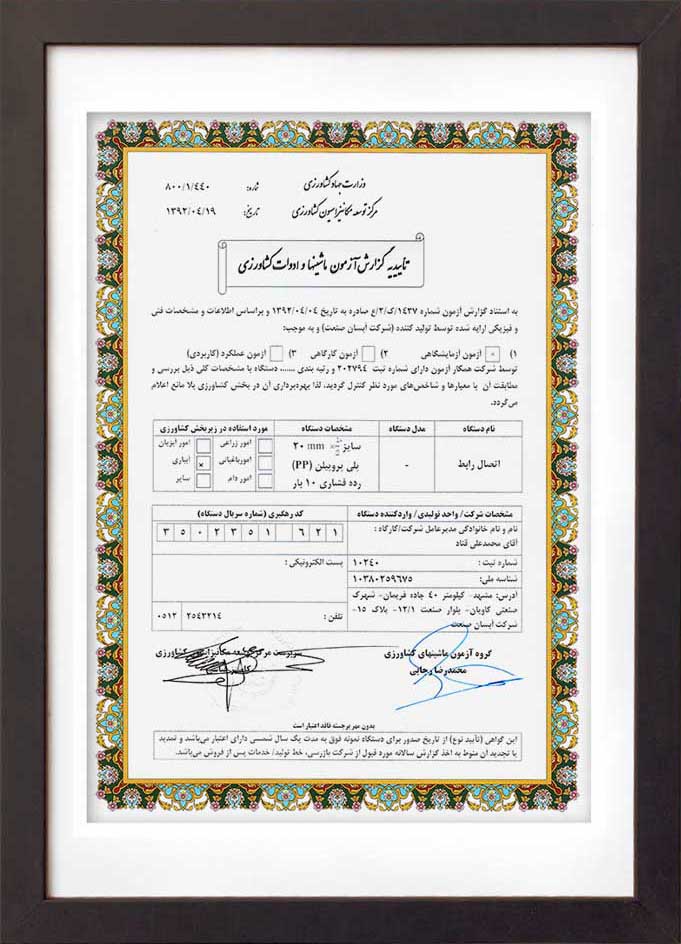 وزارت جهاد کشاورزی
شماره: ۸۰۰/۱/۴۴۰
مرکز توسعه مکانیزاسیون کشاورزی
تاریخ: ۱۳۹۲/۰۴/۱۹
تأییدیه گزارش آزمون ماشینها و ادوات کشاورزی
به استناد گزارش آزمون شماره ۱۴۳۷/ک/۲/ع صادره به تاریخ ۱۳۹۲/۰۴/۰۴ و براساس اطلاعات و مشخصات فنی
و فیزیکی ارایه شده توسط تولید کننده (شرکت آبسان صنعت) و به موجب:
۱) آزمون آزمایشگاهی ۲) آزمون کارگاهی ۳) آزمون عملکرد (کاربردی)
توسط شرکت همکار آزمون دارای شماره ثبت ۲۰۲۷۹۴ و رتبه بندی ....... دستگاه با مشخصات کلی ذیل بررسی و
مطابقت آن با معیارها و شاخص‌های مورد نظر کنترل گردید، لذا بهره‌برداری آن در بخش کشاورزی بلا مانع اعلام
می‌گردد.
نام دستگاه مدل دستگاه مشخصات دستگاه مورد استفاده در زیربخش کشاورزی
اتصال رابط - سایز ۲۰ mm ×
پلی پروپیلن (PP)
رده فشاری ۱۰ بار
امور زراعی امور آبزیان
امور باغبانی آبیاری ×
امور دام سایر
مشخصات شرکت/ واحد تولیدی/ واردکننده دستگاه کد رهگیری (شماره سریال دستگاه)
نام و نام خانوادگی مدیرعامل شرکت/کارگاه :
آقای محمدعلی قناد
۳ ۵ ۰ ۲ ۳ ۵ ۱ ۶ ۲ ۱
شماره ثبت : ۱۰۲۴۰
پست الکترونیکی :
شناسه ملی: ۱۰۳۸۰۲۵۹۶۷۵
آدرس: مشهد- کیلومتر ۴۰ جاده فریمان- شهرک
صنعتی کاویان- بلوار صنعت ۱۲/۱- پلاک ۱۵-
شرکت آبسان صنعت
تلفن : ۲۵۴۳۲۱۴ ۰۵۱۲
گروه آزمون ماشینهای کشاورزی
محمدرضا رجایی
سرپرست مرکز توسعه مکانیزاسیون کشاورزی
بدون مهر برجسته فاقد اعتبار است
این گواهی (تأیید نوع) از تاریخ صدور برای دستگاه نمونه فوق به مدت یک سال شمسی دارای اعتبار می‌باشد و تمدید
یا تجدید آن منوط به اخذ گزارش سالانه مورد قبول از شرکت بازرسی، خط تولید/ خدمات پس از فروش می‌باشد.